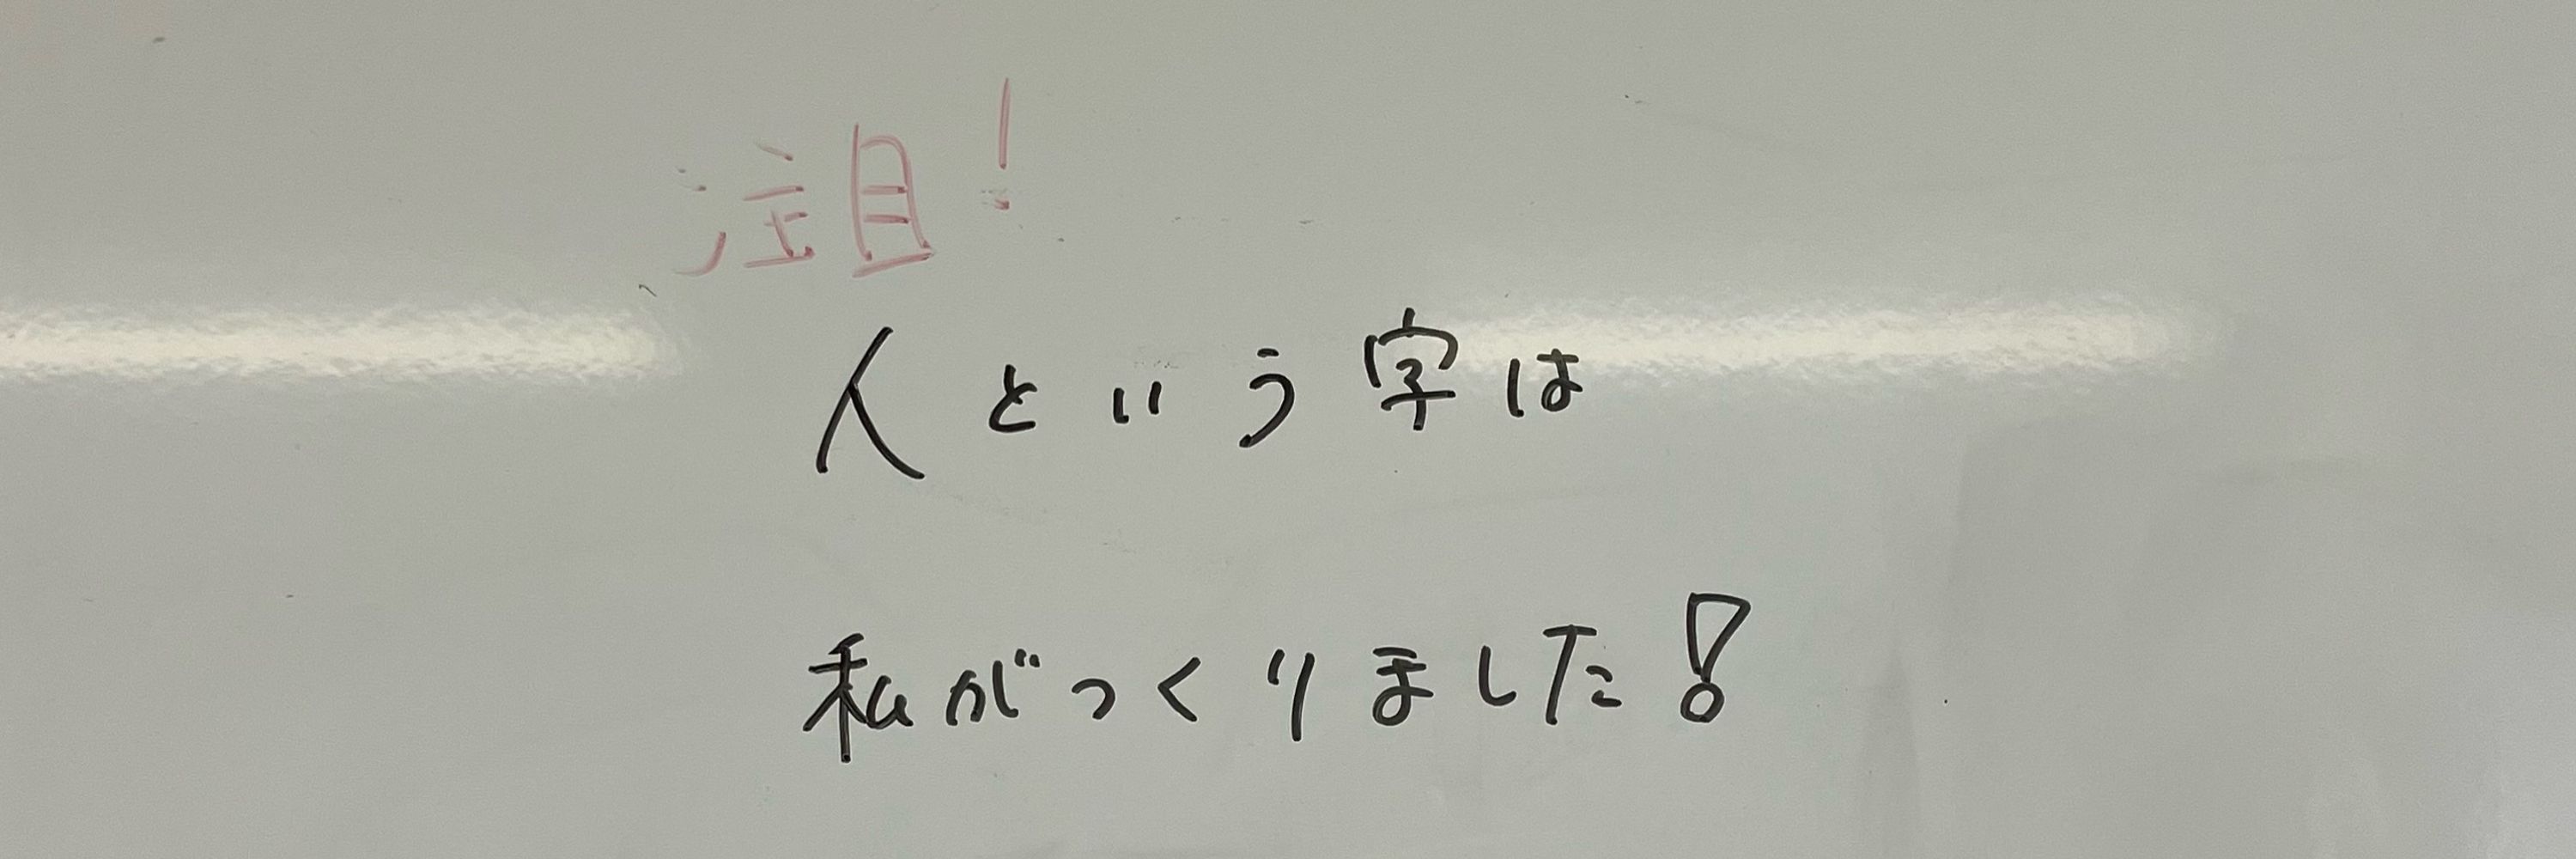 注目!
人という字は
私がつくりました!